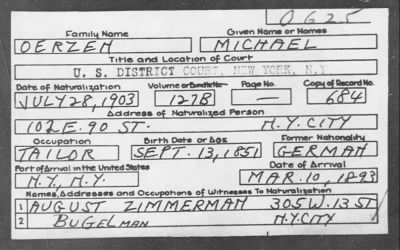 0625
Family Name Given Name or Names
OERZEN MICHAEL
Title and Location of Court
U. S. DISTRICT COURT, NEW YORK, N.Y.
Date of Naturalization Volume or Bundle No. Page No. Copy of Record No.
JULY 28, 1903 127B — 684
Address of Naturalized Person
102 E. 90 ST. N.Y. CITY
Occupation Birth Date or Age Former Nationality
TAILOR SEPT. 13, 1851 GERMAN
Port of Arrival in the United States Date of Arrival
N.Y., N.Y. MAR. 10, 1893
Names, Addresses and Occupations of Witnesses To Naturalization
1 AUGUST ZIMMERMAN 305 W. 13 ST
2 BUGELMAN N.Y. CITY